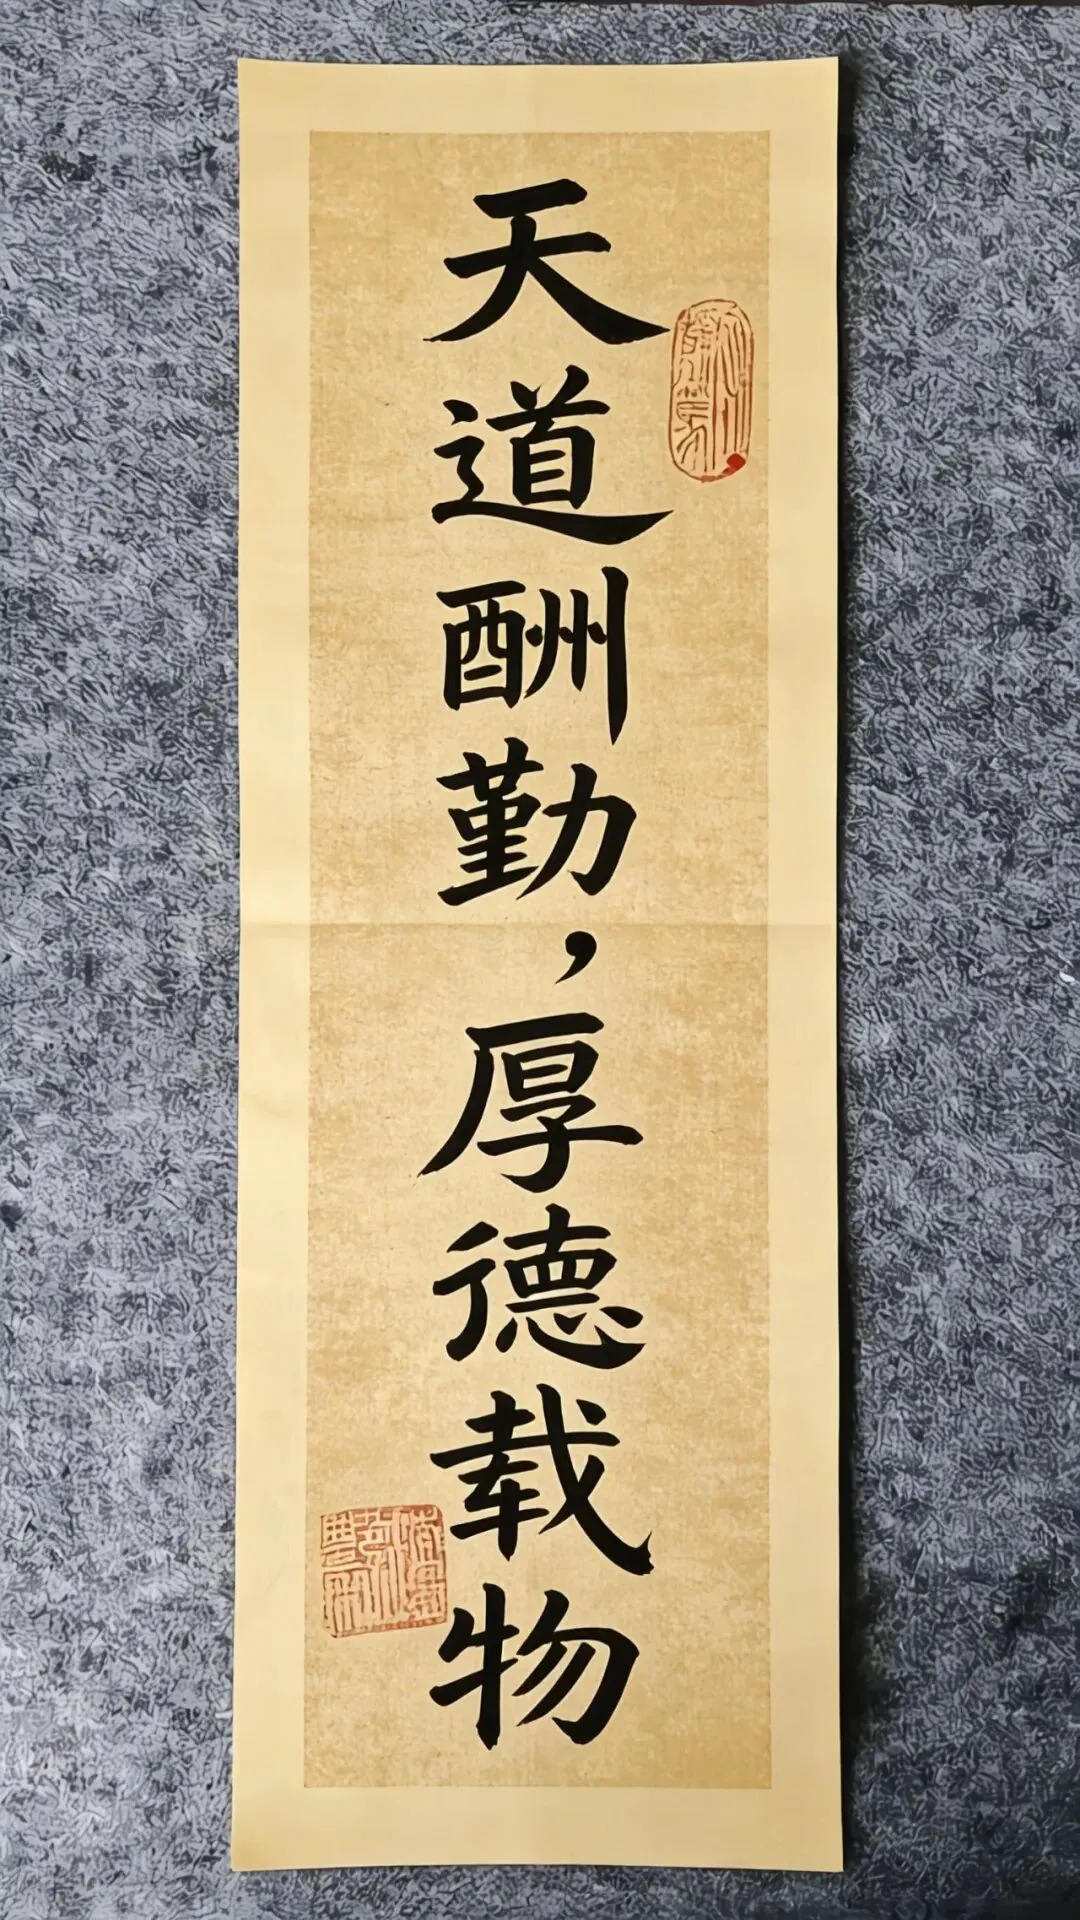 天道酬勤，厚德载物